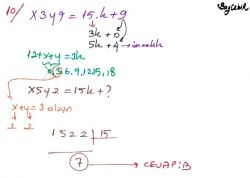 10/ x3y9 = 15.k+9
3k+0
5k+4 → inceleb
12+x+y=3k
x 3, 6, 9, 12, 15, 18
x5y2 = 15k+?
x+y=3 olsun
1 2
1522 | 15
7 → CEVAP:B